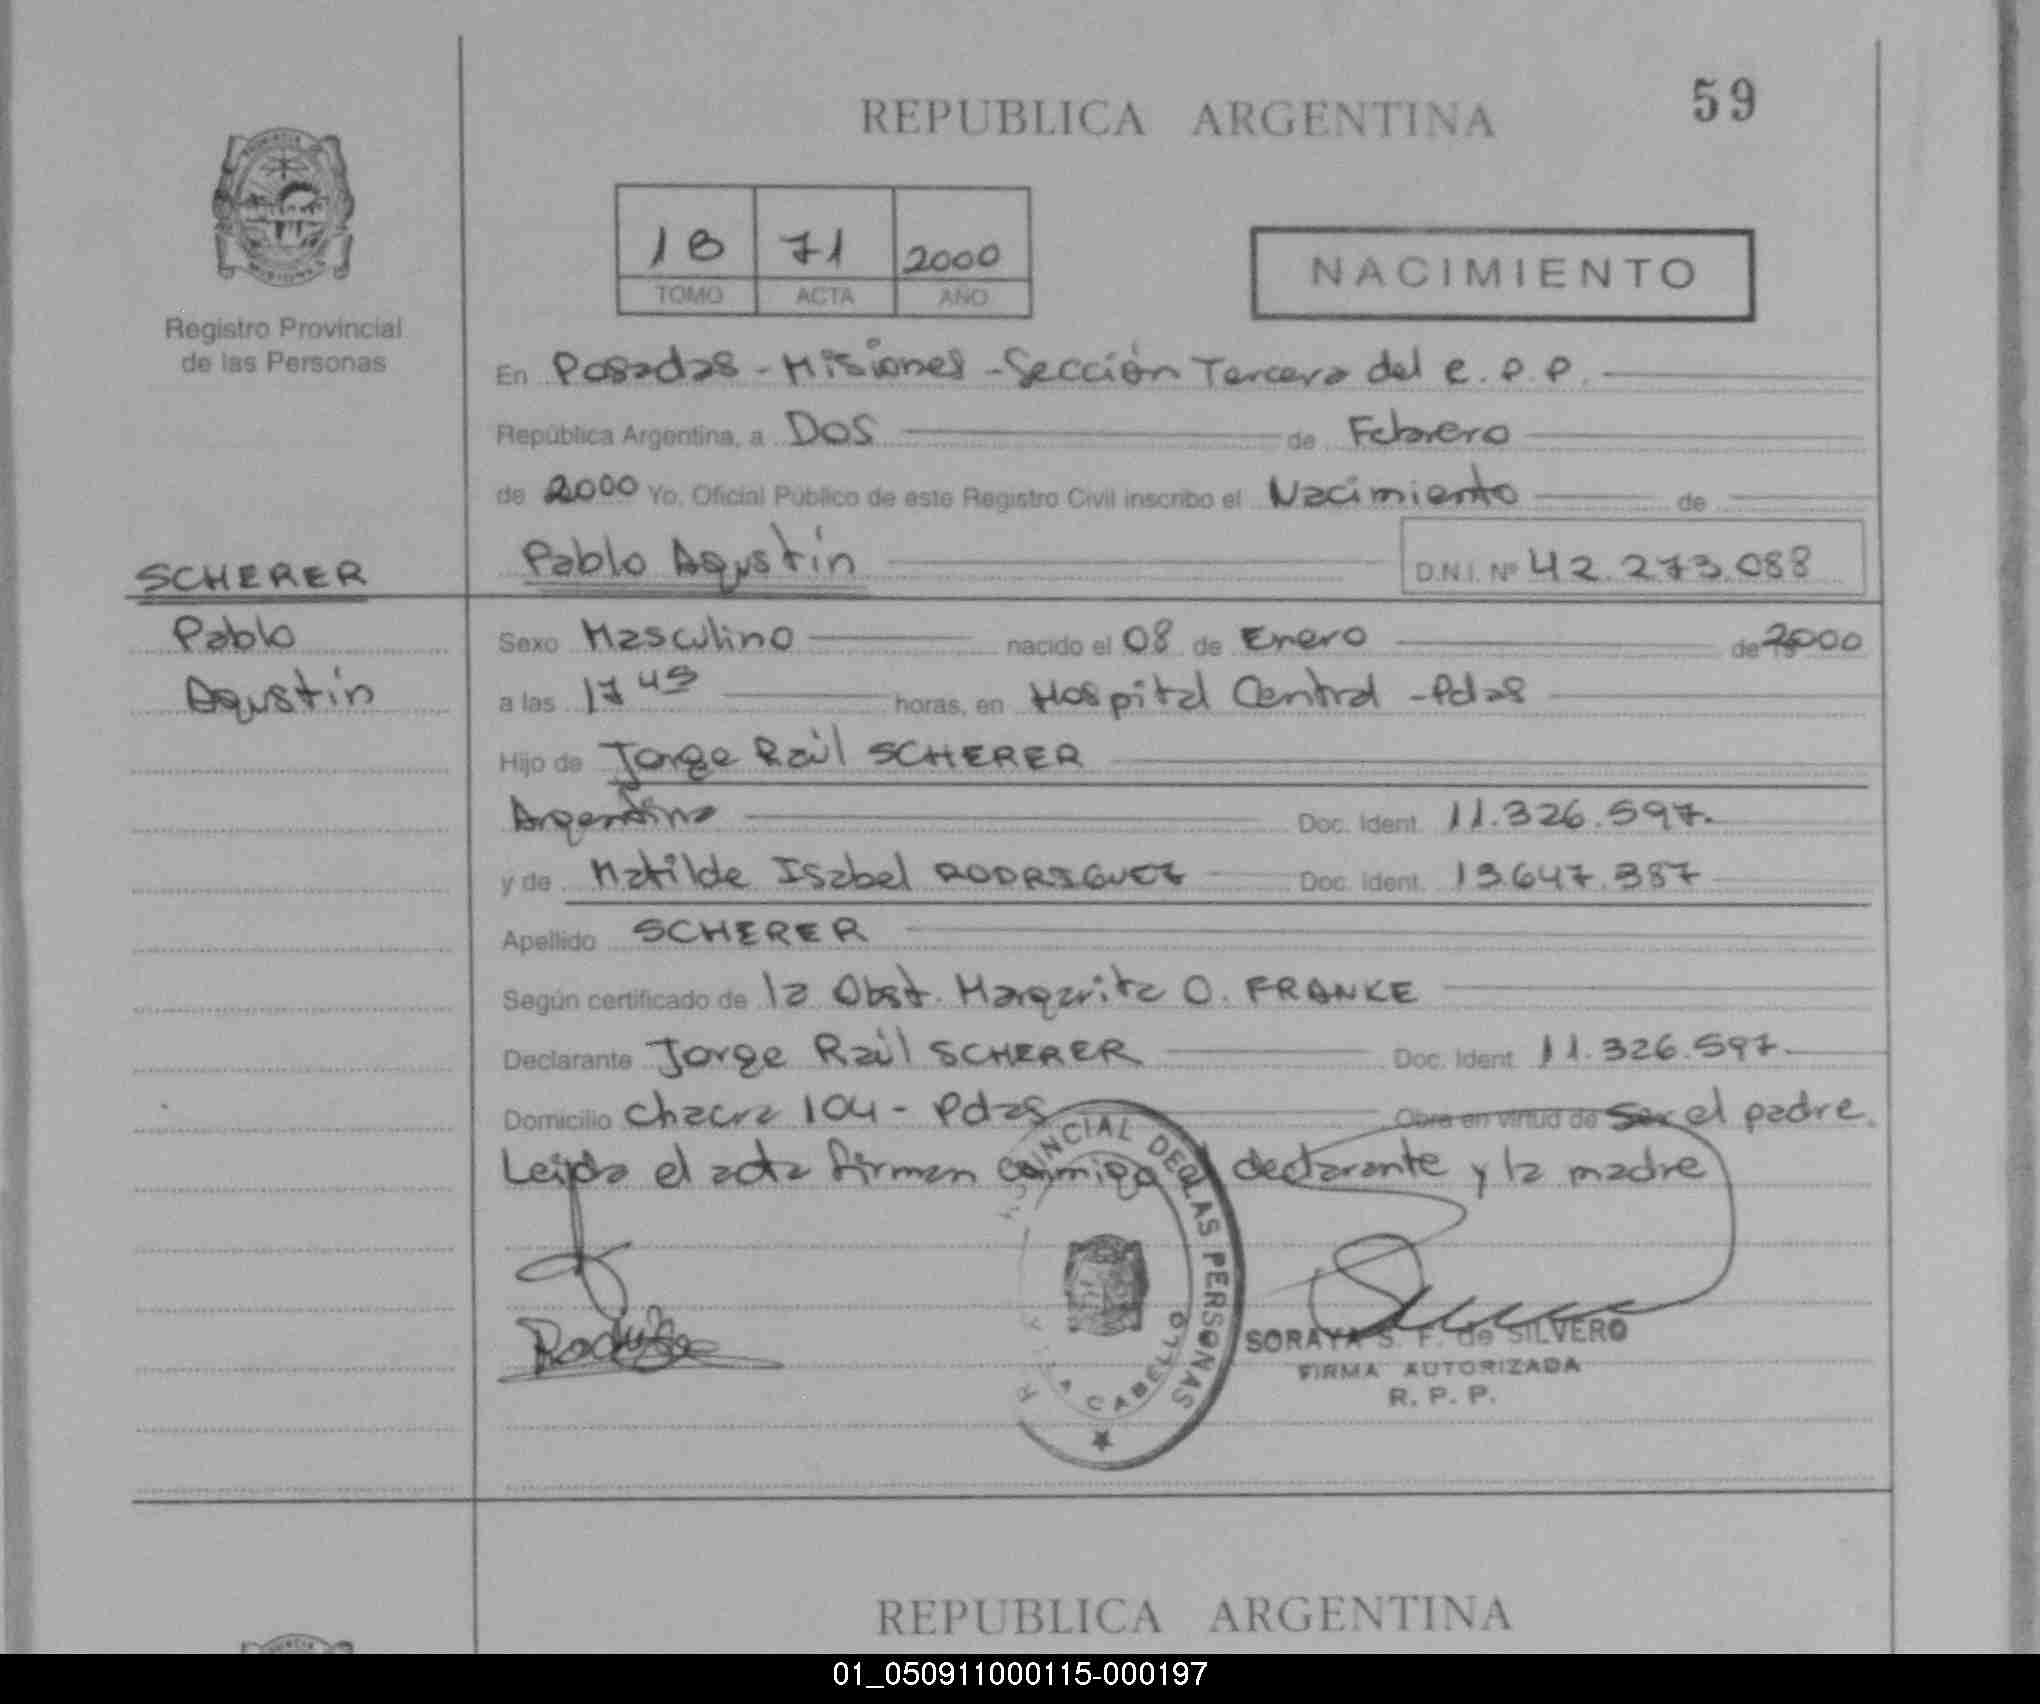 REPUBLICA ARGENTINA
59
Registro Provincial
de las Personas
18 71 2000
TOMO ACTA AÑO
NACIMIENTO
En Posadas - Misiones - Sección Tercera del R.P.P.
República Argentina, a Dos de Febrero
de 2000 Yo, Oficial Público de este Registro Civil inscribo el Nacimiento de
Pablo Agustín D.N.I. Nº 42.273.088
SCHERER
Pablo
Agustín
Sexo Masculino nacido el 08 de Enero de 2000
a las 17 45 horas, en Hospital Central - Pdas
Hijo de Jorge Raúl SCHERER
Argentina Doc. Ident. 11.326.597.
y de Matilde Isabel RODRIGUEZ Doc. Ident. 13.647.387
Apellido SCHERER
Según certificado de la Obst. Margarita O. FRANKE
Declarante Jorge Raúl SCHERER Doc. Ident. 11.326.597.
Domicilio Chacra 104 - Pdas Obra en virtud de ser el padre.
Leída el acta firman conmigo declarante y la madre
Rodríguez
PROVINCIAL DE LAS PERSONAS
CABELLO
SORAYA S. F. de SILVERO
FIRMA AUTORIZADA
R. P. P.
REPUBLICA ARGENTINA
01_050911000115-000197